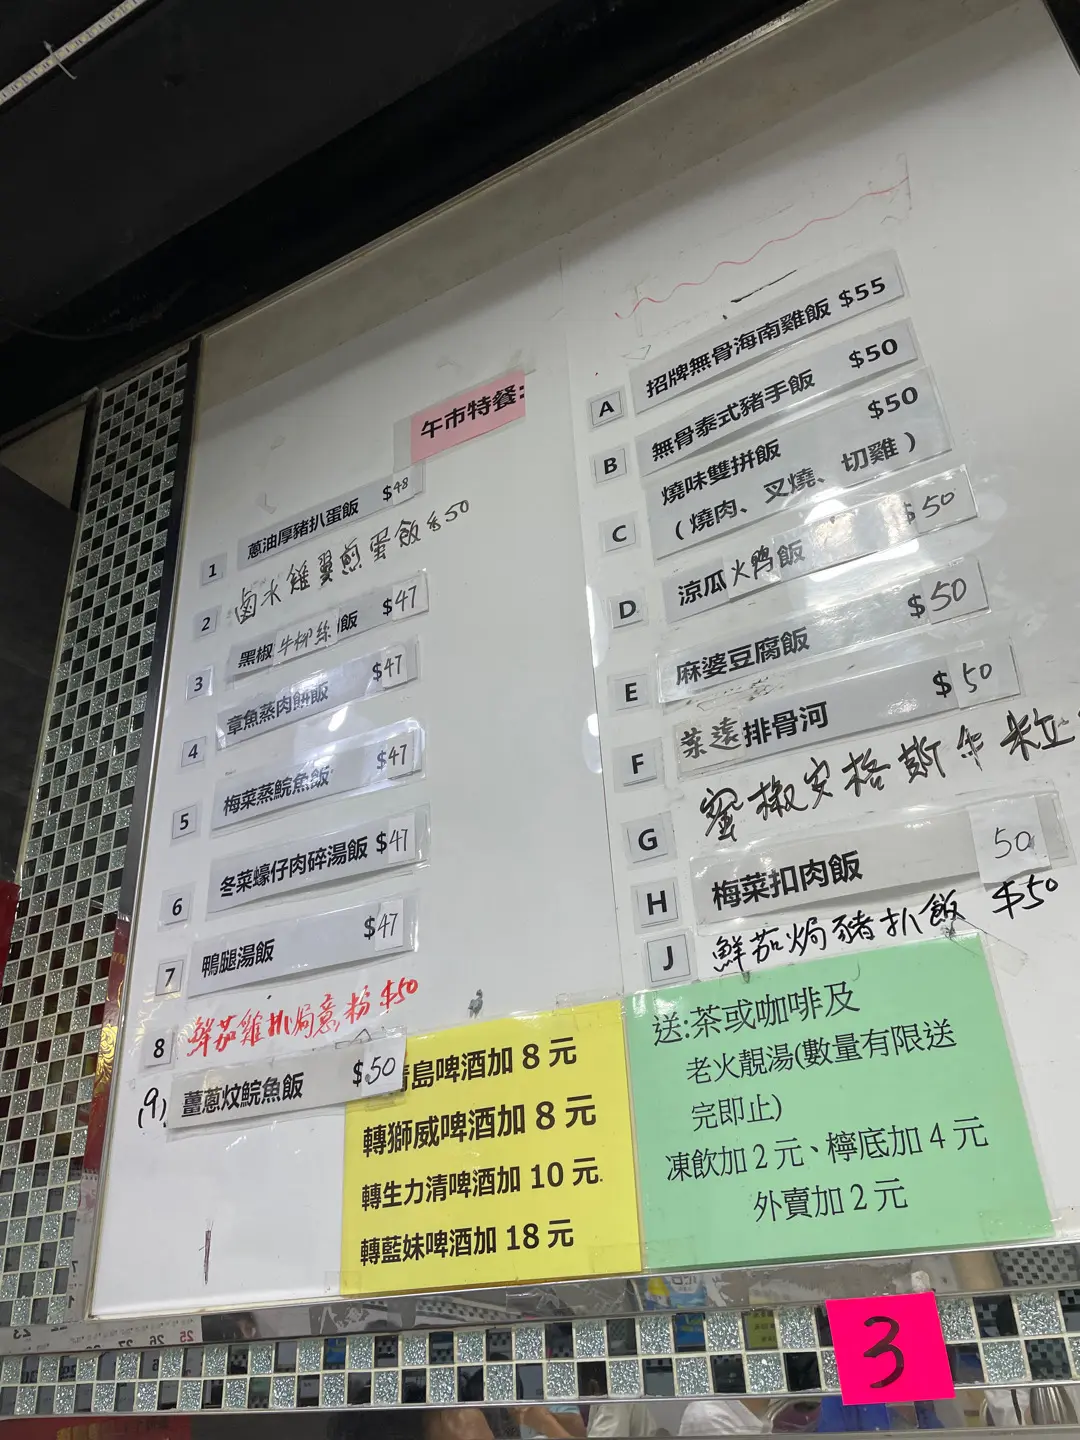 午市特餐:
1 蔥油厚豬扒蛋飯 $48
2 鹵水雞翼煎蛋飯 $50
3 黑椒牛柳絲飯 $47
4 章魚蒸肉餅飯 $47
5 梅菜蒸鯇魚飯 $47
6 冬菜蠔仔肉碎湯飯 $47
7 鴨腿湯飯 $47
8 鮮茄雞扒焗意粉 $50
(9) 薑蔥炆鯇魚飯 $50
A 招牌無骨海南雞飯 $55
B 無骨泰式豬手飯 $50
C 燒味雙拼飯 $50
(燒肉、叉燒、切雞)
D 涼瓜火鸭飯 $50
E 麻婆豆腐飯 $50
F 菜遠排骨河 $50
G 蜜椒安格斯牛粒
H 梅菜扣肉飯 50
J 鮮茄焗豬扒飯 $50
島啤酒加 8 元
轉獅威啤酒加 8 元
轉生力清啤酒加 10 元.
轉藍妹啤酒加 18 元
送:茶或咖啡及
老火靚湯(數量有限送
完即止)
凍飲加 2 元、檸底加 4 元
外賣加 2 元
3